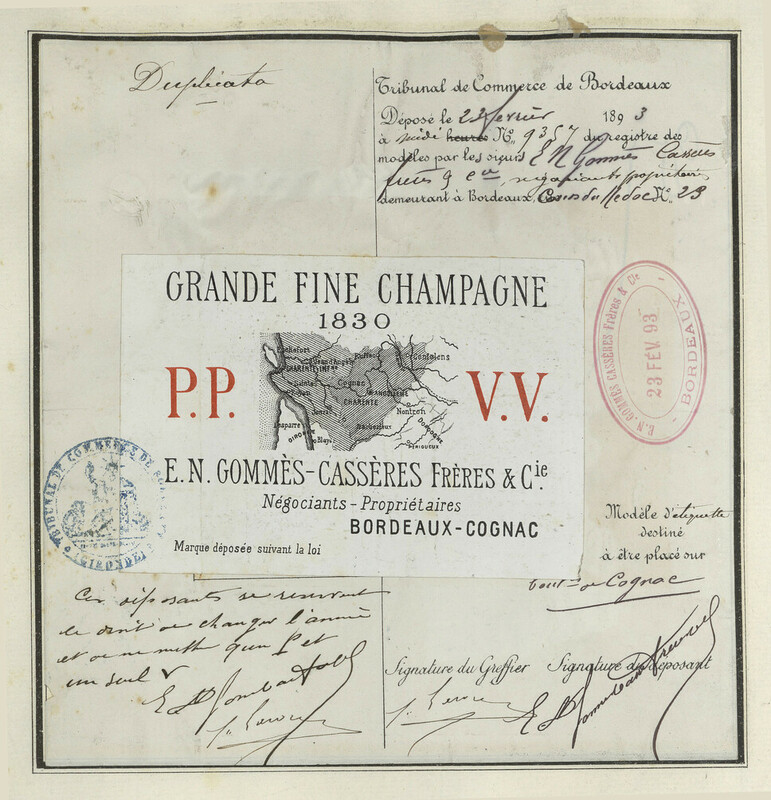 Duplicata
Tribunal de Commerce de Bordeaux
Déposé le 23 février 1893
à midi heures N° 9357 du registre des
modèles par les sieurs E N Gommès Cassères
frères & Cie, négociants propriétaires
demeurant à Bordeaux, Cours du Médoc N° 23
GRANDE FINE CHAMPAGNE
1830
Rochefort
St Jean d'Angély
Ruffec
Confolens
CHARENTE INFRE
Saintes
Cognac
ANGOULÊME
CHARENTE
Jonzac
Nontron
Lesparre
Barbezieux
GIRONDE
Blaye
DORDOGNE
PÉRIGUEUX
P.P.
V.V.
E.N. GOMMÈS-CASSÈRES FRÈRES & Cie.
Négociants-Propriétaires
BORDEAUX-COGNAC
Marque déposée suivant la loi
E.N. GOMMÈS CASSÈRES Frères & Cie
23 FÉV 93
BORDEAUX
TRIBUNAL DE COMMERCE DE BORDEAUX
(GIRONDE)
Modèle d'étiquette
destiné
à être placé sur
bout. de Cognac
Les déposants se réservent
le droit de changer l'année
et de ne mettre qu'un P et
un seul V
Signature du Greffier
Signature du Déposant